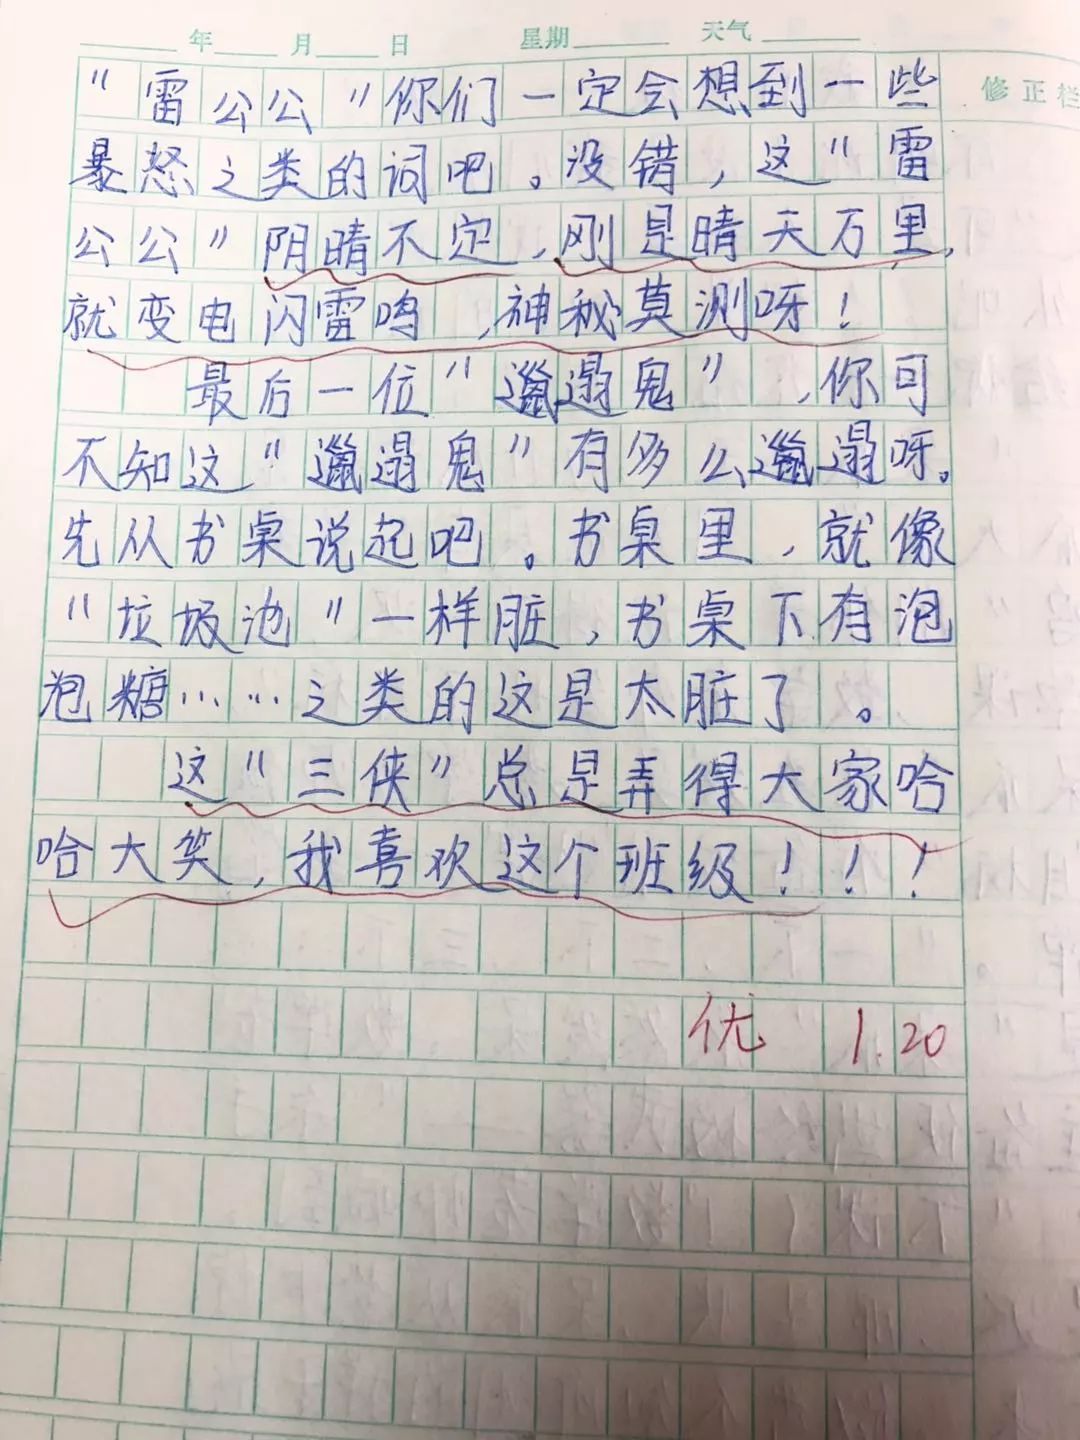 年 月 日 星期 天气
修正栏
“雷公公”你们一定会想到一些
暴怒之类的词吧。没错,这“雷
公公”阴晴不定,刚是晴天万里,
就变电闪雷鸣,神秘莫测呀!
最后一位“邋遢鬼”,你可
不知这“邋遢鬼”有多么邋遢呀。
先从书桌说起吧。书桌里,就像
“垃圾池”一样脏,书桌下有泡
泡糖……之类的这是太脏了。
这“三侠”总是弄得大家哈
哈大笑,我喜欢这个班级!!!
优 1.20